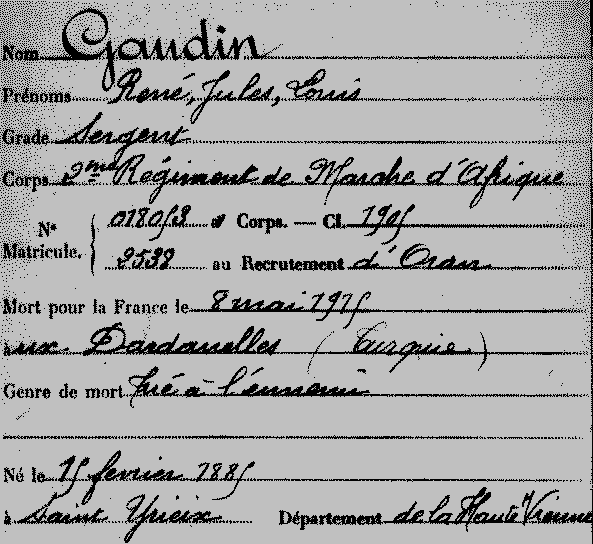 Nom Gaudin
Prénoms René, Jules, Louis
Grade Sergent
Corps 2me Régiment de Marche d'Afrique
N° Matricule. { 01805/3 au Corps. — Cl. 1905
2538 au Recrutement d'Oran
Mort pour la France le 8 mai 1915
aux Dardanelles (Turquie)
Genre de mort tué à l'ennemi
Né le 15 fevrier 1885
à Saint Yrieix Département de la Haute Vienne